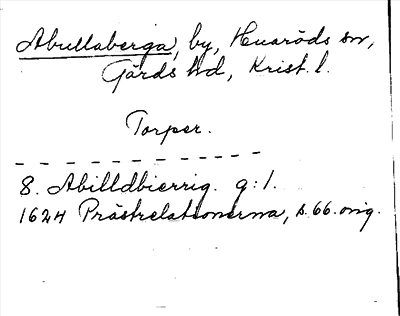 Abullaberga, by, Huaröds sn,
Gärds hd, Krist. l.
Torper.
8. Abilldbierrig. g:1.
1624 Prästrelationerna, s. 66. orig.